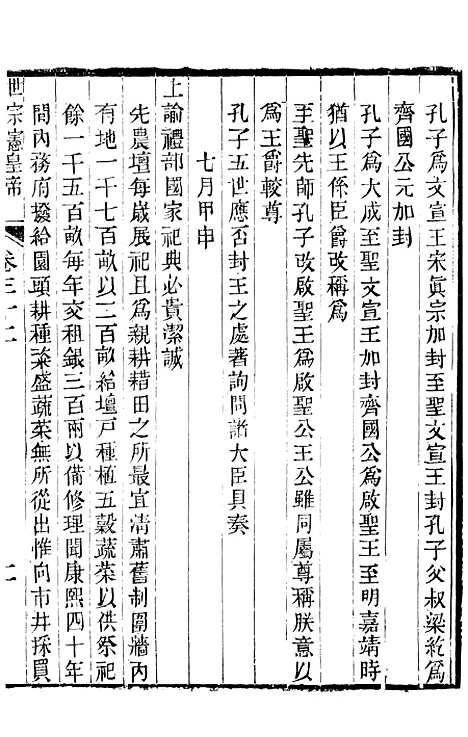 孔子爲文宣王宋眞宗加封至聖文宣王封孔子父叔梁紇爲
齊國公元加封
孔子爲大成至聖文宣王加封齊國公爲啟聖王至明嘉靖時
猶以王係臣爵改稱爲
至聖先師孔子改啟聖王爲啟聖公王公雖同屬尊稱朕意以
爲王爵較尊
孔子五世應否封王之處著詢問諸大臣具奏
七月甲申
上諭禮部國家祀典必貴潔誠
先農壇每歲展祀且爲親耕耤田之所最宜清肅舊制圍牆內
有地一千七百畝以二百畝給壇戸種植五穀蔬菜以供祭祀
餘一千五百畝每年交租銀三百兩以備修理聞康熙四十年
間內務府撥給園頭耕種粢盛蔬菜無所從出惟向市井採買
世宗憲皇帝 卷三十二 二